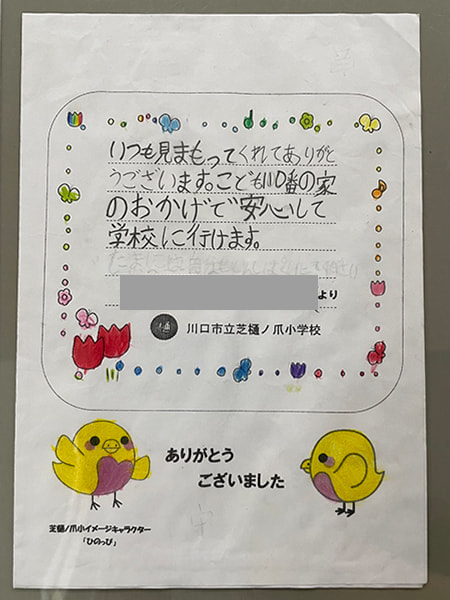 いつも見まもってくれてありがと
うございます。こども110番の家
のおかげで安心して
学校に行けます。
より
川口市立芝樋ノ爪小学校
ありがとう
ございました
芝樋ノ爪小イメージキャラクター
「ひのっぴ」